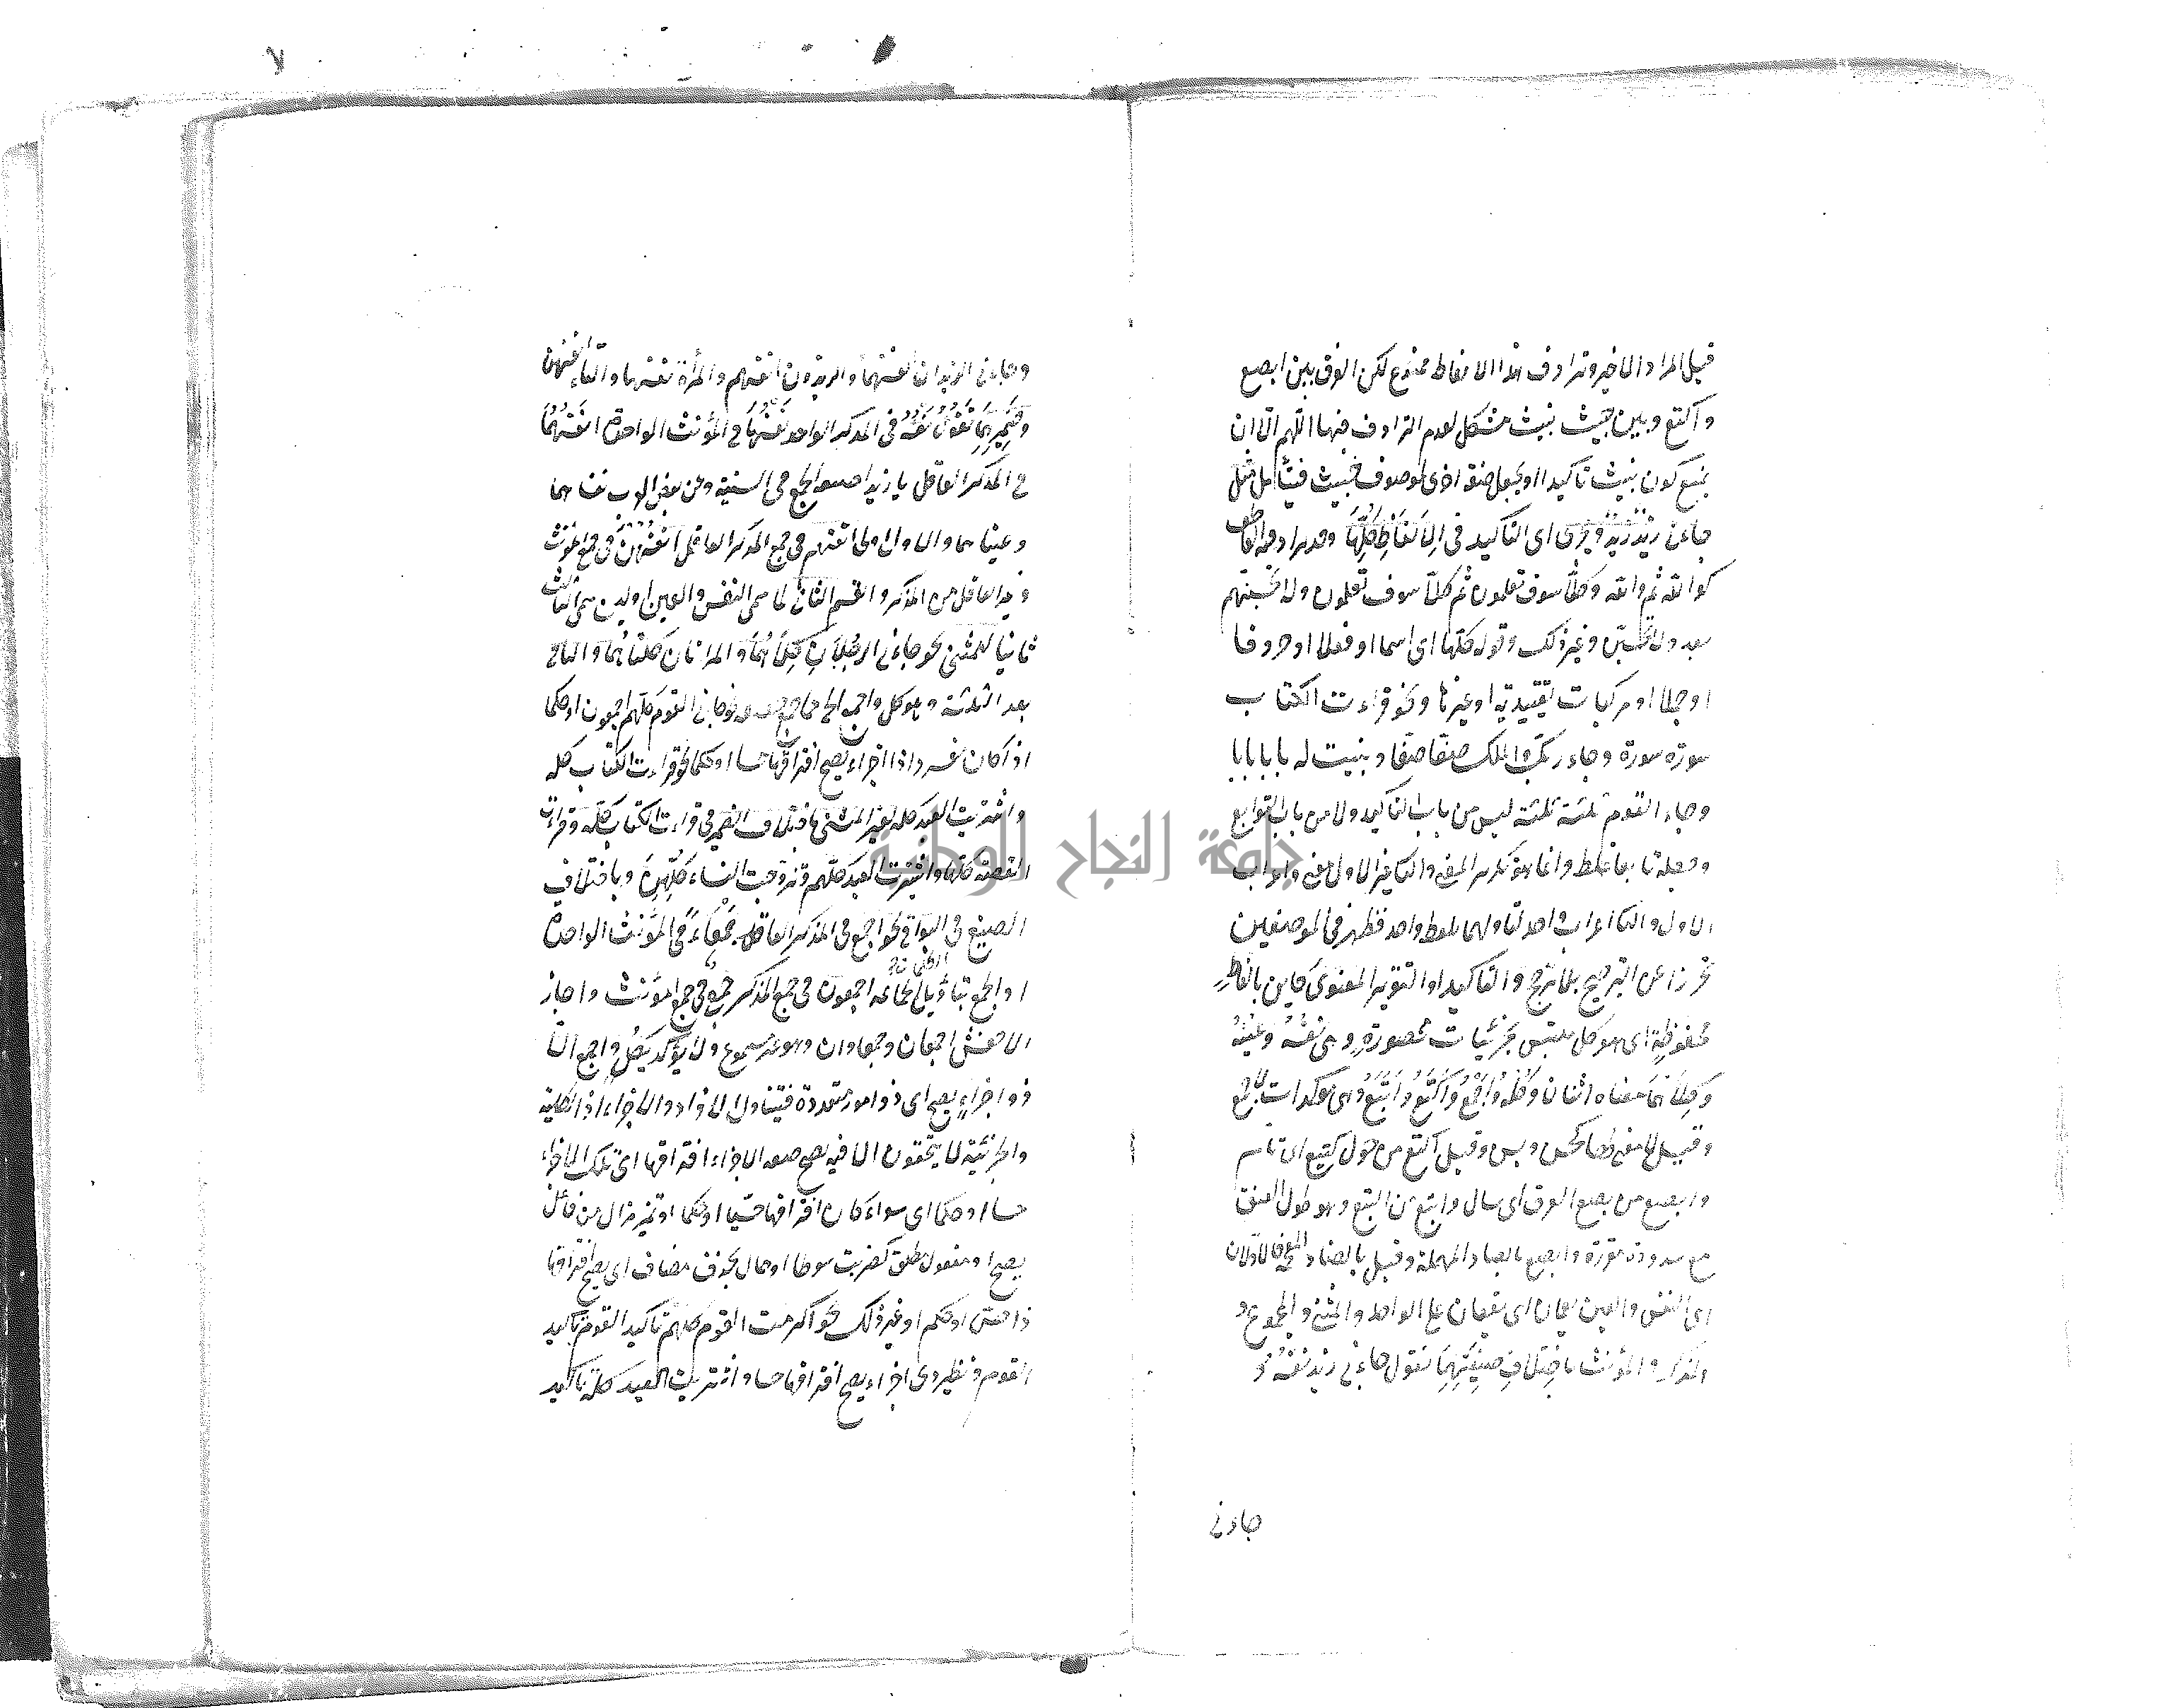 قيل المراد الاخير وترادف هذا الالفاظ ممنوع لكن الفرق بين ابصع
واكتع وبين خبيث نبيث مشكل لعدم الترادف فيها اللهم الا ان
يمنع كون نبيث تاكيدا او يجعل صفة اخرى لموصوف خبيث فيتأمل مثل
جاءنى زيد زيد ويجرى اى التاكيد فى الالفاظ كلها وحده
والله ثم والله وكلا سوف تعلمون ثم كلا سوف تعلمون ولا تحسبنهم
بعد ولا تحسبن وغير ذلك وقوله كلها اى اسما او فعلا او حروفا
او جملا او مركبات تقييدية او غيرها ونحو قراءت الكتاب
سورة سورة وجاء ربك والملك صفا صفا وبنيت له بابا بابا
وجاء القوم ثلثة ثلثة ليس من باب التاكيد ولا من باب التوابع
وجعله تابعا غلط وانما هو تكرير المعنى والثانى غير الاول معنى واعراب
الاول والثانى اعراب واحد لتاولهما بلفظ واحد فظهر فى الموضعين
تحرزا عن الترجيح بلا مرجح والتاكيد او التقرير المعنوى كاين بالفاظ
محفوظة اى هو كل ملتبس بجزئيات محصورة وهى نفسه وعينه
وكلاهما معناه اثنان وكله واجمع واكتع وابتع وهى مؤكدات لاجمع
وقيل لا معنى لها كحسن وبسن وقيل اكتع من حول كتيع اى تام
وابصع من بصع العرق اى سال وابتع من البتع وهو طول العنق
مع شدة مغرزه وابصع بالصاد المهملة وقيل بالضاد المعجمة فالاولان
اى النفس والعين يعمان اى يقعان على الواحد والمثنى والمجموع و
المذكر والمؤنث باختلاف صيغتهما تقول جاءنى زيد نفسه و
جاءنى
وجاءنى الزيدان انفسهما والزيدون انفسهم والمرأة نفسها والنساء انفسهن
وضميرهما تقول نفسه فى المذكر الواحد نفسها فى المؤنث الواحدة انفسهما
فى المذكر العاقل يا زيد الجمع فى التثنية وعن بعض العرب نفساهما
وعيناهما والاول اولى انفسهم فى جمع المذكر العاقل انفسهن فى جمع المؤنث
وغير العاقل من المذكر والقسم الثانى لما سمى النفس والعين اولين سمى الثالث
ثانيا للمثنى نحو جاءنى الرجلان كلاهما والمراتان كلتاهما والباقى
بعد الثلثة وهو كل واجمع الى نحو جاءنى القوم كلهم اجمعون او حكما
اذا كان مفردا ذا اجزاء يصح افتراقها حسا او حكما نحو قراءت الكتاب كله
واشتريت العبد كله لغير المثنى باختلاف الضمير فى قراءت الكتاب كله وقراءت
القصة كلها واشتريت العبيد كلهم وتزوجت النساء كلهن وباختلاف
الصيغ فى البواقى نحو اجمع فى المذكر العاقل جمعاء فى المؤنث الواحدة
او الجمع بتاويل الجماعة اجمعون فى جمع المذكر جمع فى جمع المؤنث واجاز
الاخفش اجمعان وجمعاوان وهو غير مسموع ولا يؤكد بكل واجمع الا
ذو اجزاء يصح اى ذو امور متعددة فيتناول الافراد والاجزاء اذ الكلية
والجزئية لا يتحققون الا فيه يصح صفة الاجزاء افتراقها اى تلك الاجزاء
حسا او حكما اى سواء كان افتراقها حسيا او حكما او تميز مزال من فاعل
يصح او مفعول مطلق كضربت سوطا او حال بحذف مضاف اى يصح افتراقها
ذا حس او حكم او غير ذلك نحو اكرمت القوم كلهم تاكيد القوم تاكيد
القوم ونظير ذى اجزاء يصح افتراقها حسا واشتريت العبد كله تاكيد
جامعة النجاح الوطنية